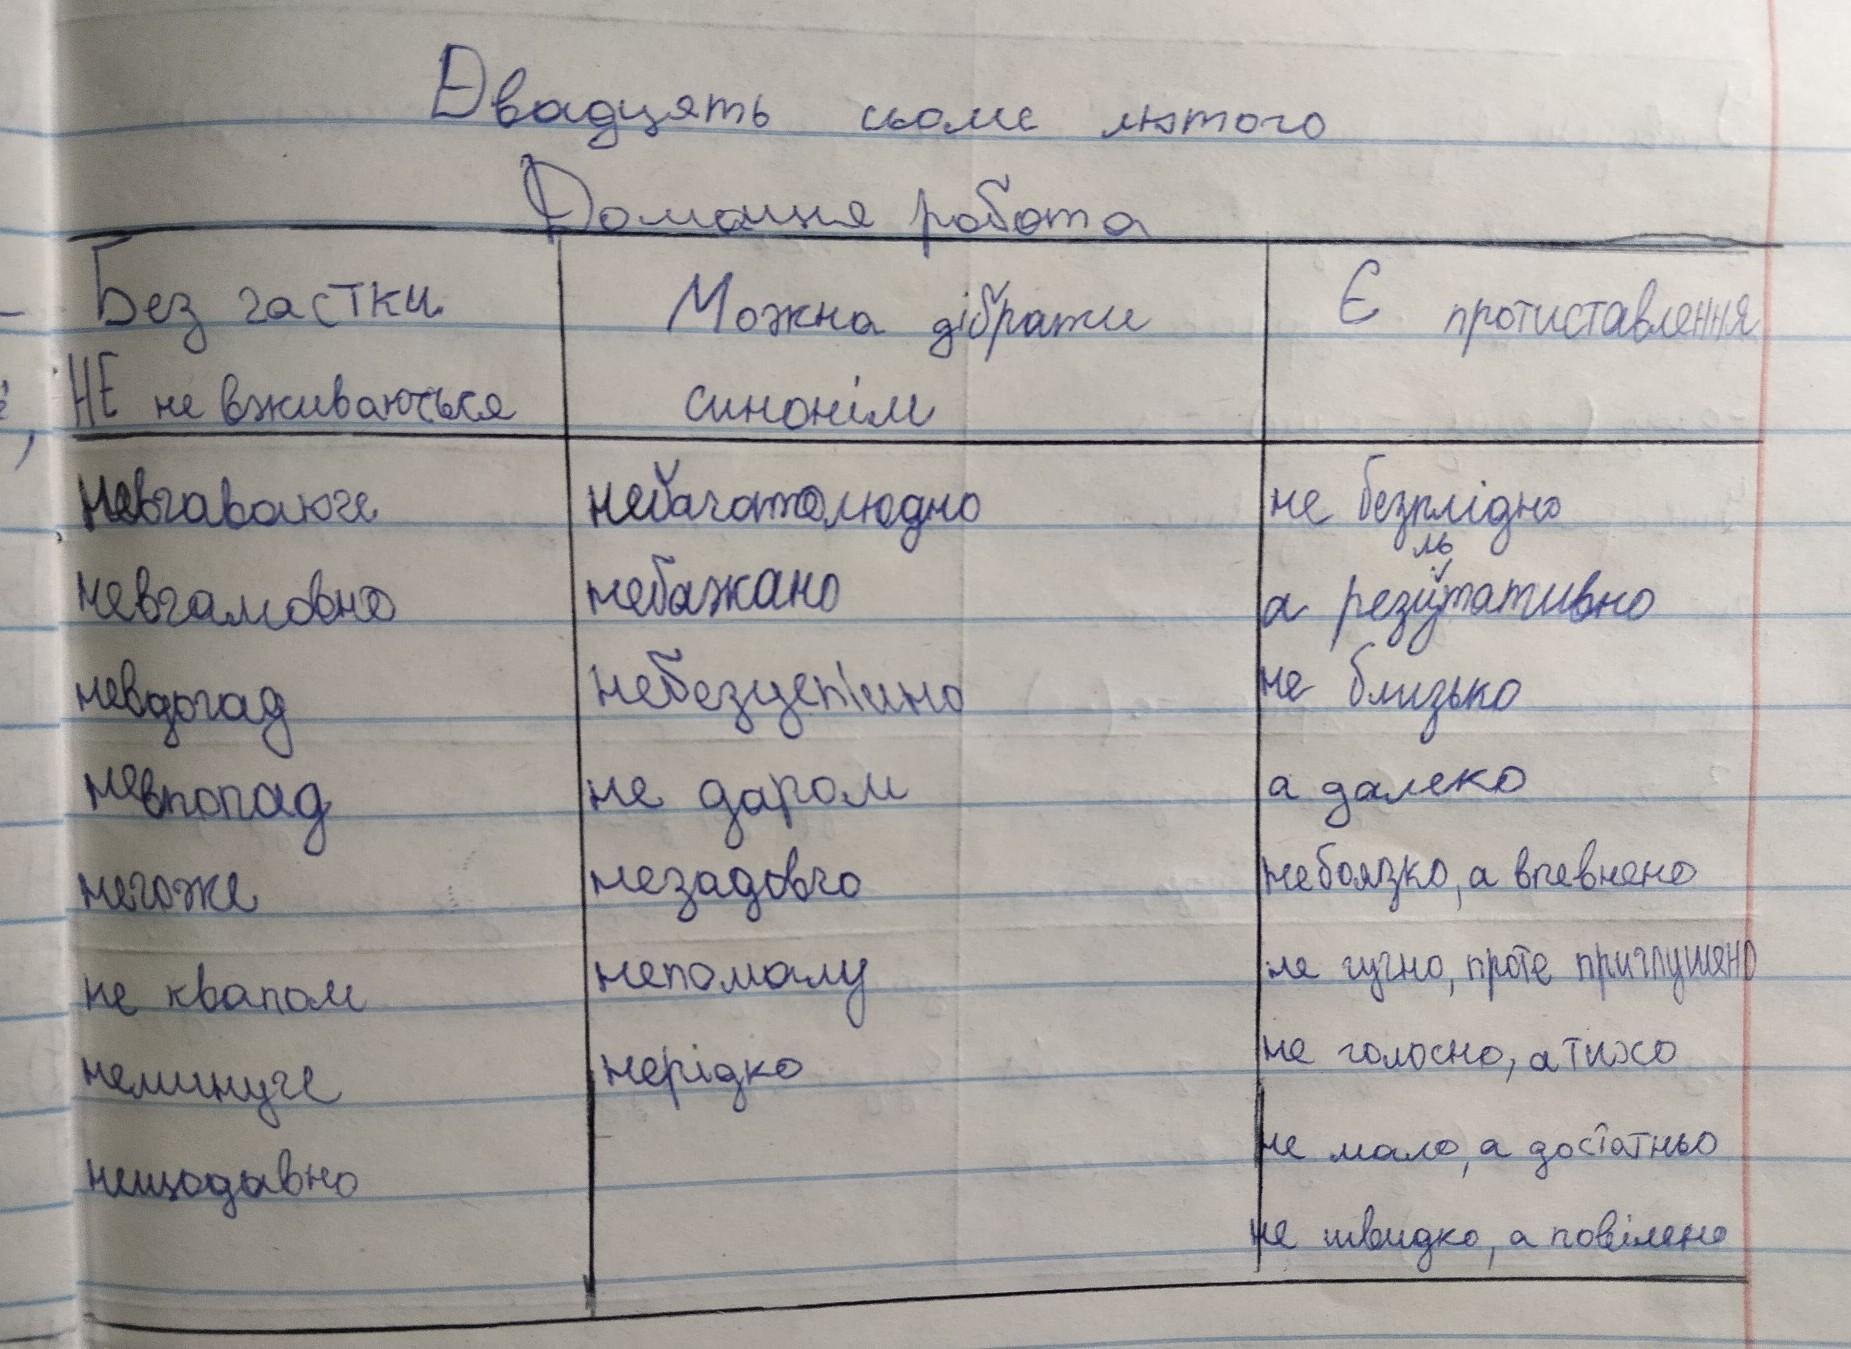 Двадцять сьоме лютого
Домашня робота
Без частки
НЕ не вживаються
Можна дібрати
синонім
Є протиставлення
невгаваюче
невгамовно
невдогад
невпопад
негоже
не квапом
неминуче
нещодавно
небагатолюдно
небажано
небезуспішно
не даром
незадовго
непомалу
нерідко
не безплідно
а результативно
не близько
а далеко
небоязко, а впевнено
не гучно, проте приглушено
не голосно, а тихо
не мало, а достатньо
не швидко, а повілено